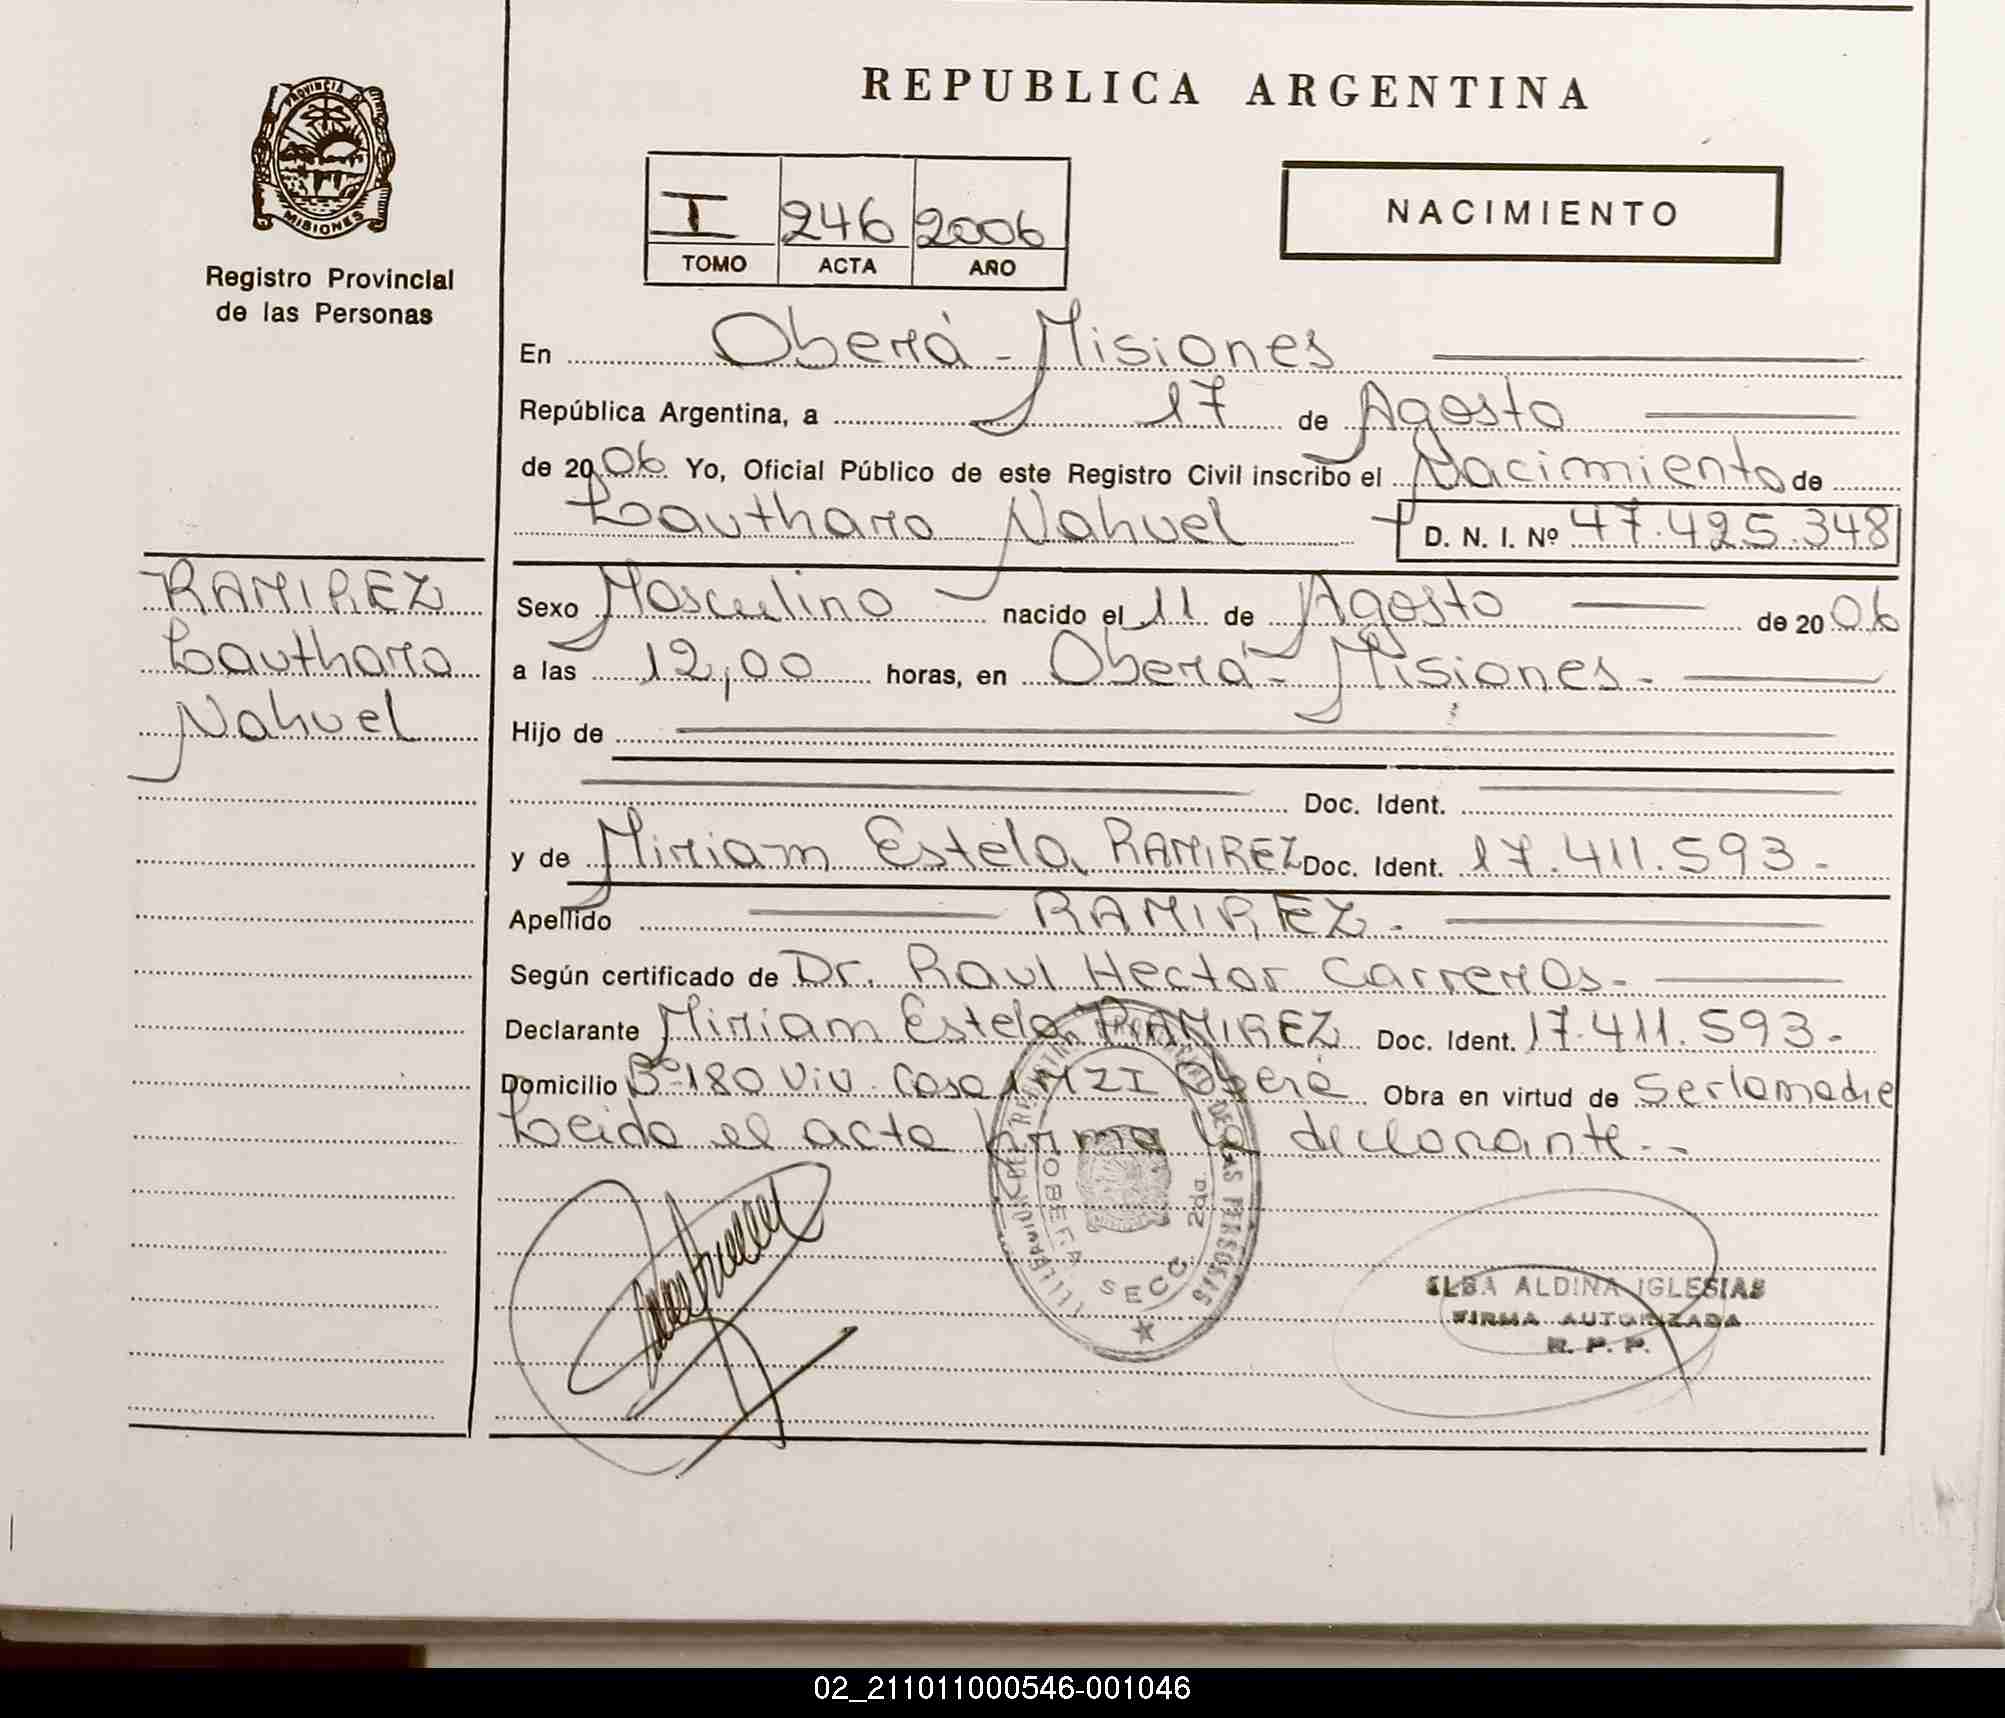 PROVINCIA DE
MISIONES
Registro Provincial
de las Personas
REPUBLICA ARGENTINA
I 246 2006
TOMO ACTA AÑO
NACIMIENTO
En Oberá - Misiones
República Argentina, a 17 de Agosto
de 2006 Yo, Oficial Público de este Registro Civil inscribo el Nacimiento de
Lautharo Nahuel D. N. I. Nº 47.425.348
RAMIREZ
Lautharo
Nahuel
Sexo Masculino nacido el 11 de Agosto de 2006
a las 12,00 horas, en Oberá - Misiones -
Hijo de
Doc. Ident.
y de Miriam Estela RAMIREZ Doc. Ident. 17.411.593-
Apellido RAMIREZ -
Según certificado de Dr. Raul Hector Carreros-
Declarante Miriam Estela RAMIREZ Doc. Ident. 17.411.593-
Domicilio Bº 180 Viv. Casa 1 MZ I Oberá Obra en virtud de Serlamadre
Leida el acta firma la declarante.-
DE LAS PERSONAS
OBERA SECC 2da.
ELBA ALDINA IGLESIAS
FIRMA AUTORIZADA
R. P. P.
02_211011000546-001046